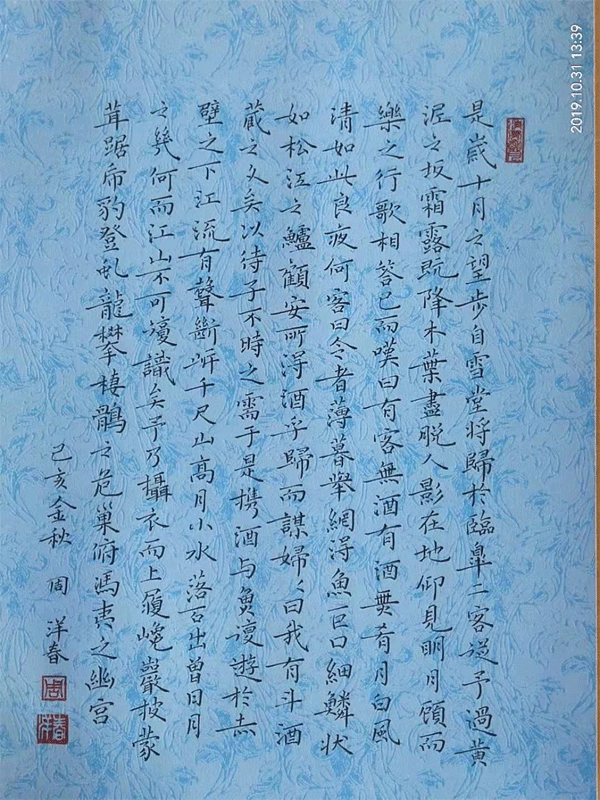 是歲十月之望步自雪堂將歸於臨皋二客從予過黃
泥之坂霜露既降木葉盡脫人影在地仰見明月顧而
樂之行歌相答已而嘆曰有客無酒有酒無肴月白風
清如此良夜何客曰今者薄暮舉網得魚巨口細鱗狀
如松江之鱸顧安所得酒乎歸而謀婦〻曰我有斗酒
藏之久矣以待子不時之需于是攜酒与魚復遊於赤
壁之下江流有聲斷岸千尺山高月小水落石出曾日月
之幾何而江山不可復識矣予乃攝衣而上履巉巖披蒙
茸踞虎豹登虬龍攀棲鶻之危巢俯馮夷之幽宮
己亥金秋 周洋春
2019.10.31 13:39